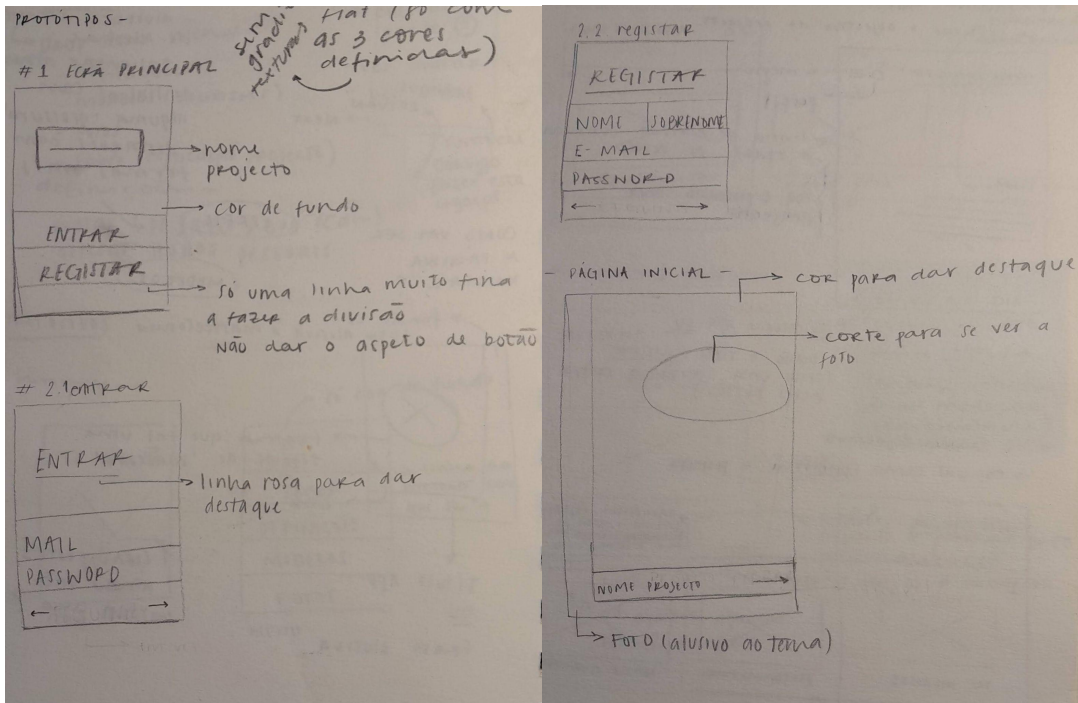 PROTÓTIPOS -
flat (só com
as 3 cores
definidas)
sem
texturas
#1 ECRÃ PRINCIPAL
nome
projecto
cor de fundo
ENTRAR
REGISTAR
só uma linha muito fina
a fazer a divisão
NÃO dar o aspeto de botão
# 2.1 entrar
ENTRAR
linha rosa para dar
destaque
MAIL
PASSWORD
2.2 registar
REGISTAR
NOME SOBRENOME
E-MAIL
PASSWORD
- PÁGINA INICIAL -
COR para dar destaque
CORTE para se ver a
FOTO
NOME PROJECTO
FOTO (alusivo ao tema)